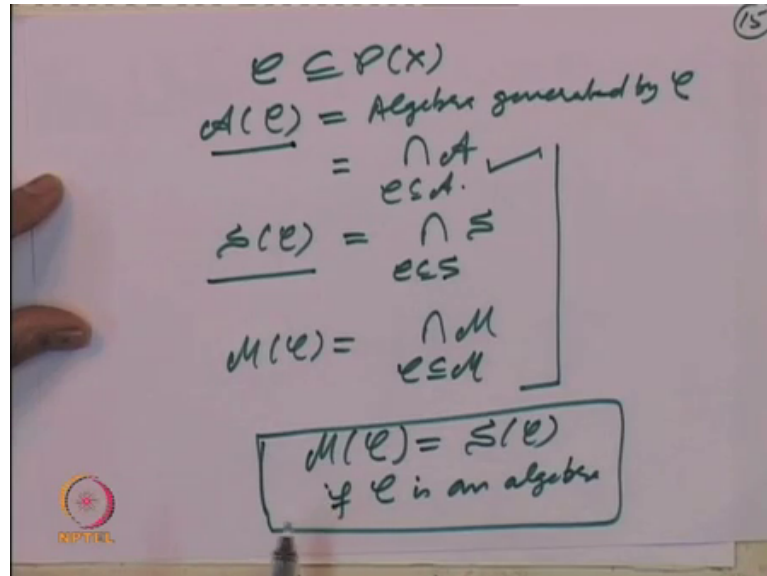 15
𝒞 ⊆ P(X)
𝒜(𝒞) = Algebra generated by 𝒞
= ∩ 𝒜
𝒞 ⊆ 𝒜.
S(𝒞) = ∩ S
𝒞 ⊆ S
ℳ(𝒞) = ∩ ℳ
𝒞 ⊆ ℳ
ℳ(𝒞) = S(𝒞)
if 𝒞 is an algebra
NPTEL